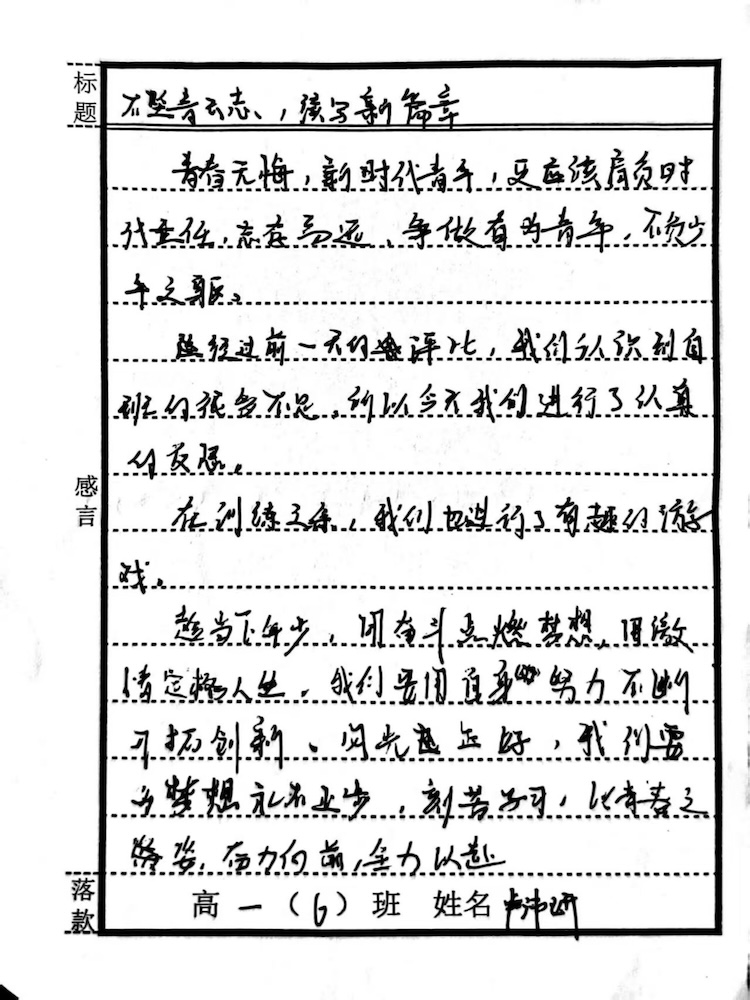 标题
不坠青云志、，续写新篇章
青春无悔，新时代青年，更应该肩负时
代重任，志存高远、争做有为青年，不负少
年之躯。
经过前一天的评比，我们认识到自
班的很多不足，所以今天我们进行了认真
的反思。
感言
在训练之余，我们也进行了有趣的游
戏。
趁当下年少，用奋斗点燃梦想，用激
情定格人生，我们要用自身的努力不断
开拓创新、阳光正好，我们要
为梦想永不止步，刻苦学习，以青春之
姿，奋力向前，全力以赴
落款
高一（6）班 姓名